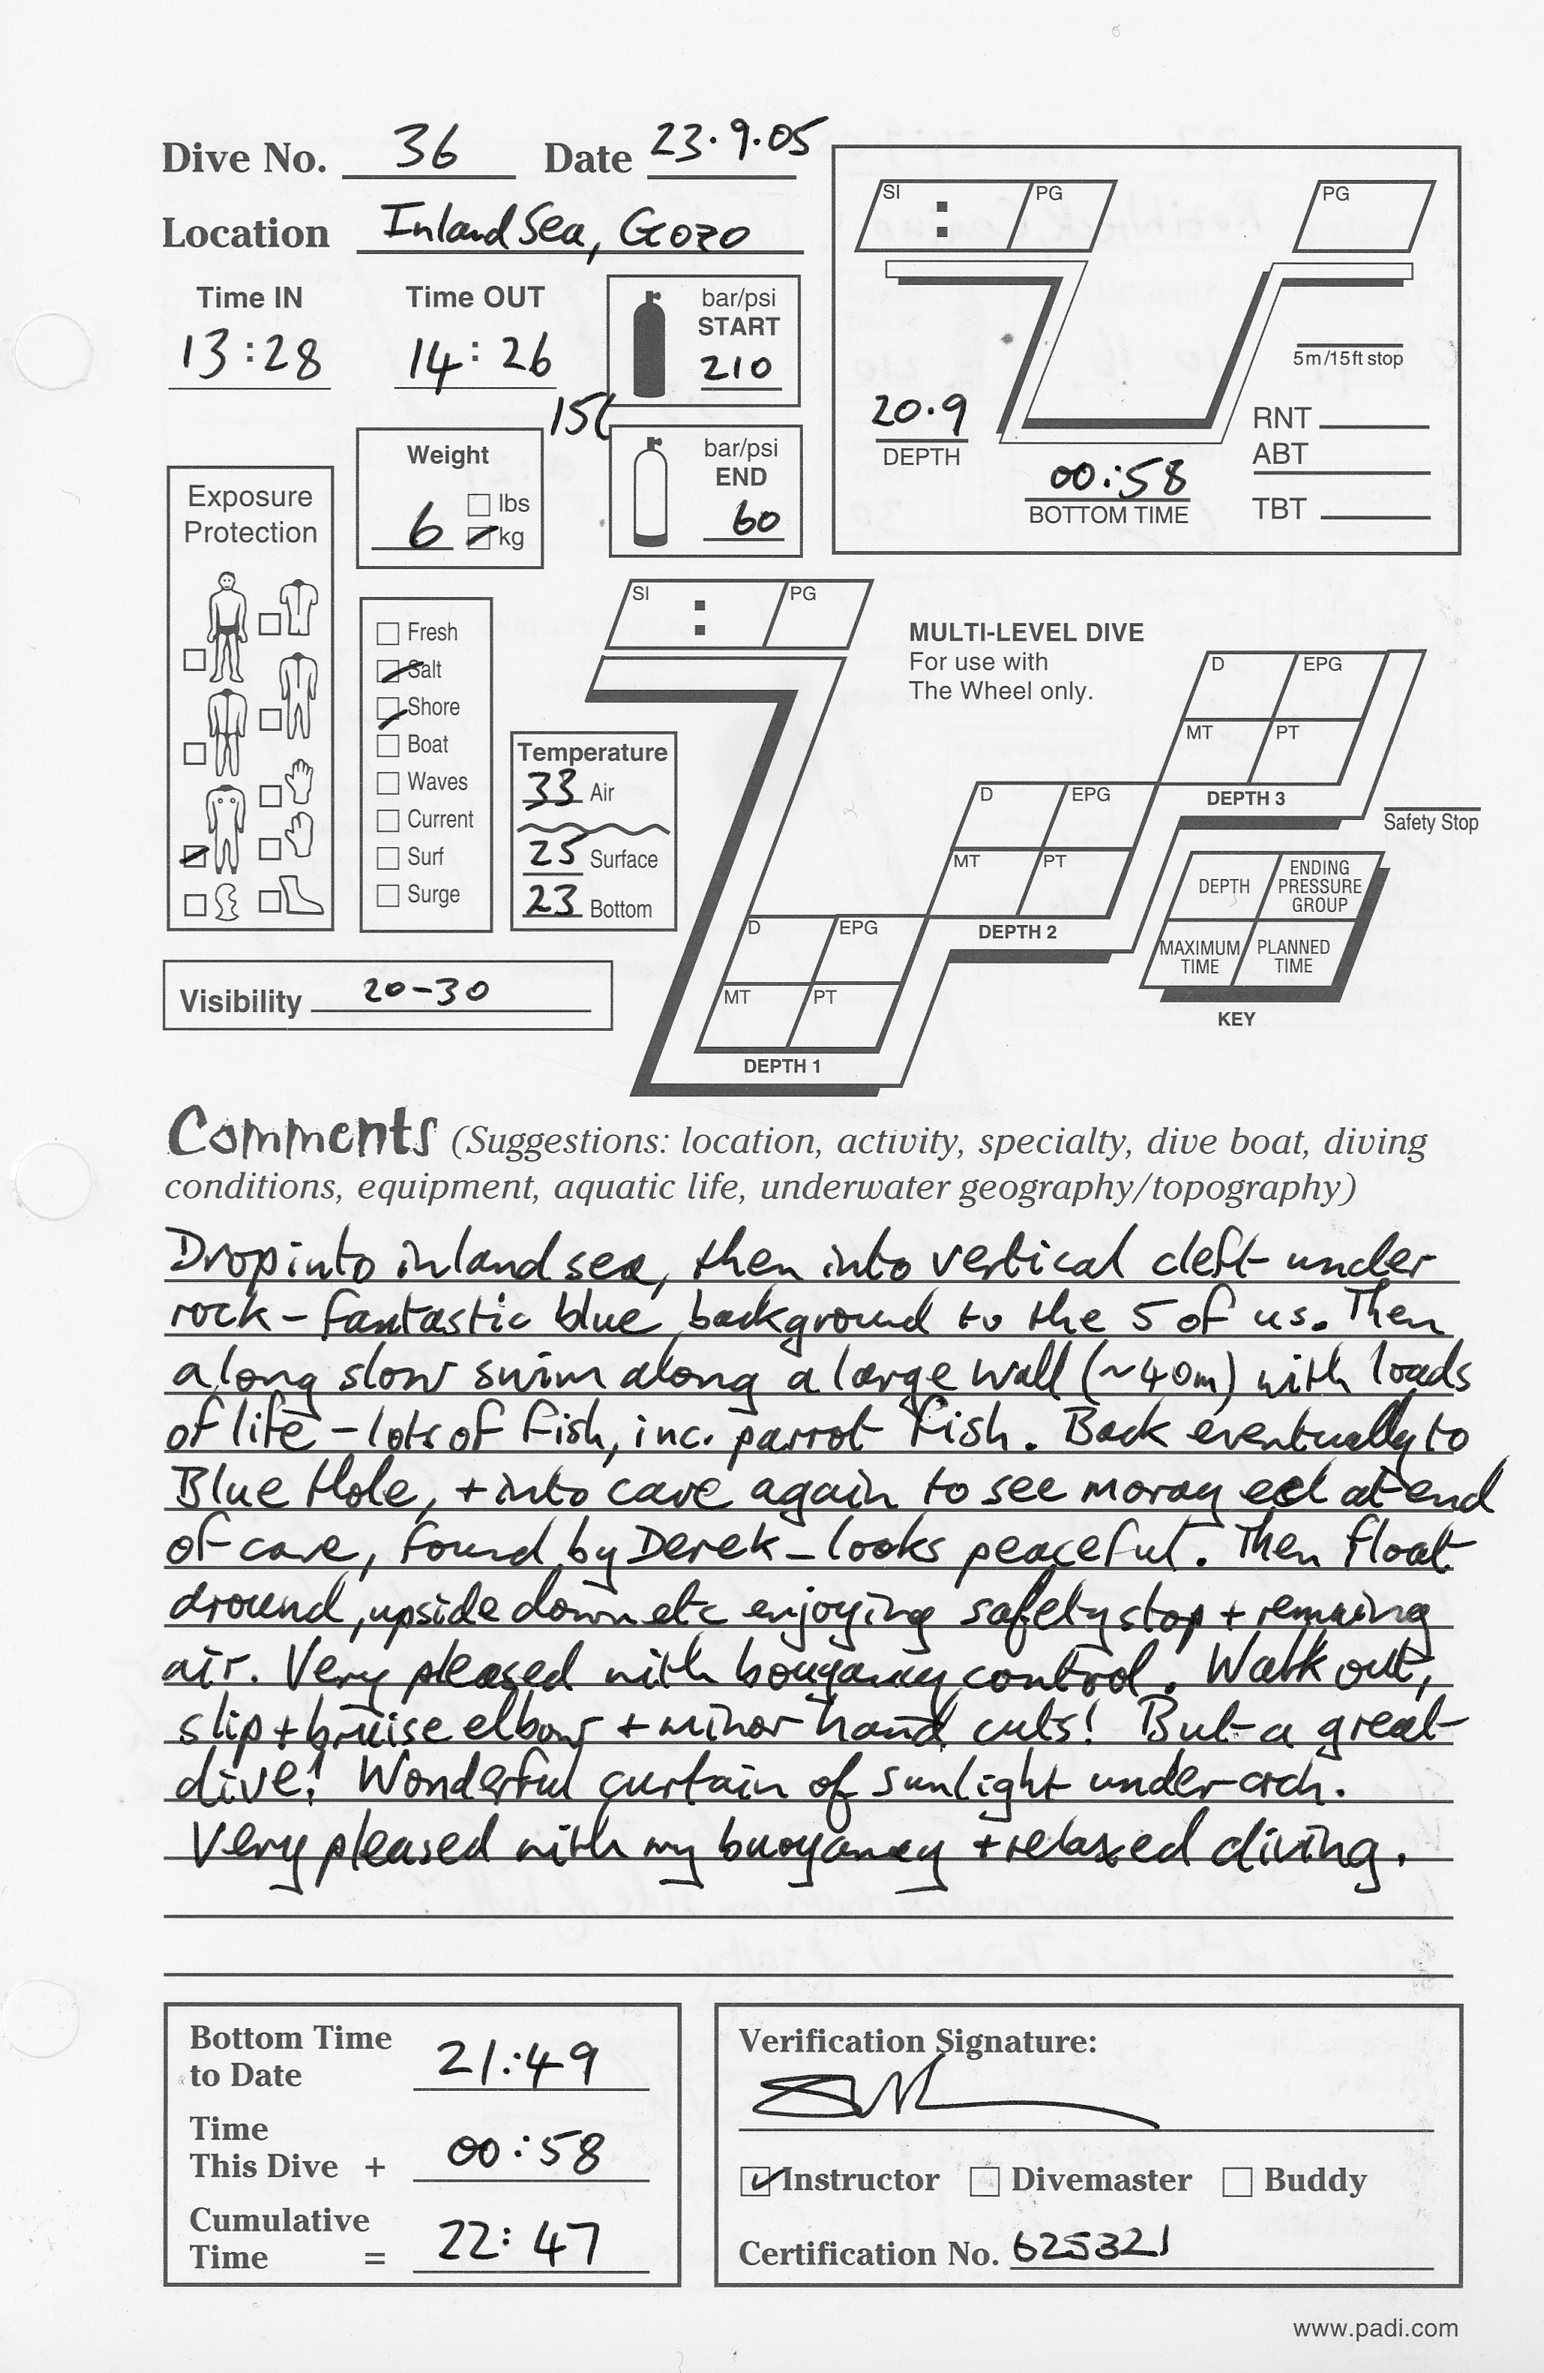 Dive No. 36 Date 23.9.05
Location Inland Sea, Gozo
Time IN Time OUT
13:28 14:26
bar/psi
START
210
150
bar/psi
END
60
Weight
6 lbs
kg
Exposure
Protection
Fresh
Salt
Shore
Boat
Waves
Current
Surf
Surge
Temperature
33 Air
25 Surface
23 Bottom
Visibility 20-30
SI : PG
PG
5m/15ft stop
20.9
DEPTH
00:58
BOTTOM TIME
RNT
ABT
TBT
SI : PG
MULTI-LEVEL DIVE
For use with
The Wheel only.
D EPG
MT PT
DEPTH 3
Safety Stop
D EPG
MT PT
DEPTH 2
D EPG
MT PT
DEPTH 1
DEPTH ENDING PRESSURE GROUP
MAXIMUM TIME PLANNED TIME
KEY
Comments (Suggestions: location, activity, specialty, dive boat, diving
conditions, equipment, aquatic life, underwater geography/topography)
Drop into inland sea, then into vertical cleft under
rock - fantastic blue background to the 5 of us. Then
a long slow swim along a large wall (~40m) with loads
of life - lots of fish, inc. parrot fish. Back eventually to
Blue Hole, + into cave again to see moray eel at end
of cave, found by Derek - looks peaceful. Then float
around, upside down etc enjoying safety stop + remaing
air. Very pleased with bouyancy control. Walk out,
slip + bruise elbow + minor hand cuts! But a great
dive! Wonderful curtain of sunlight under arch.
Very pleased with my buoyancy + relaxed diving.
Bottom Time
to Date 21:49
Time
This Dive + 00:58
Cumulative
Time = 22:47
Verification Signature:
Instructor Divemaster Buddy
Certification No. 625321
www.padi.com